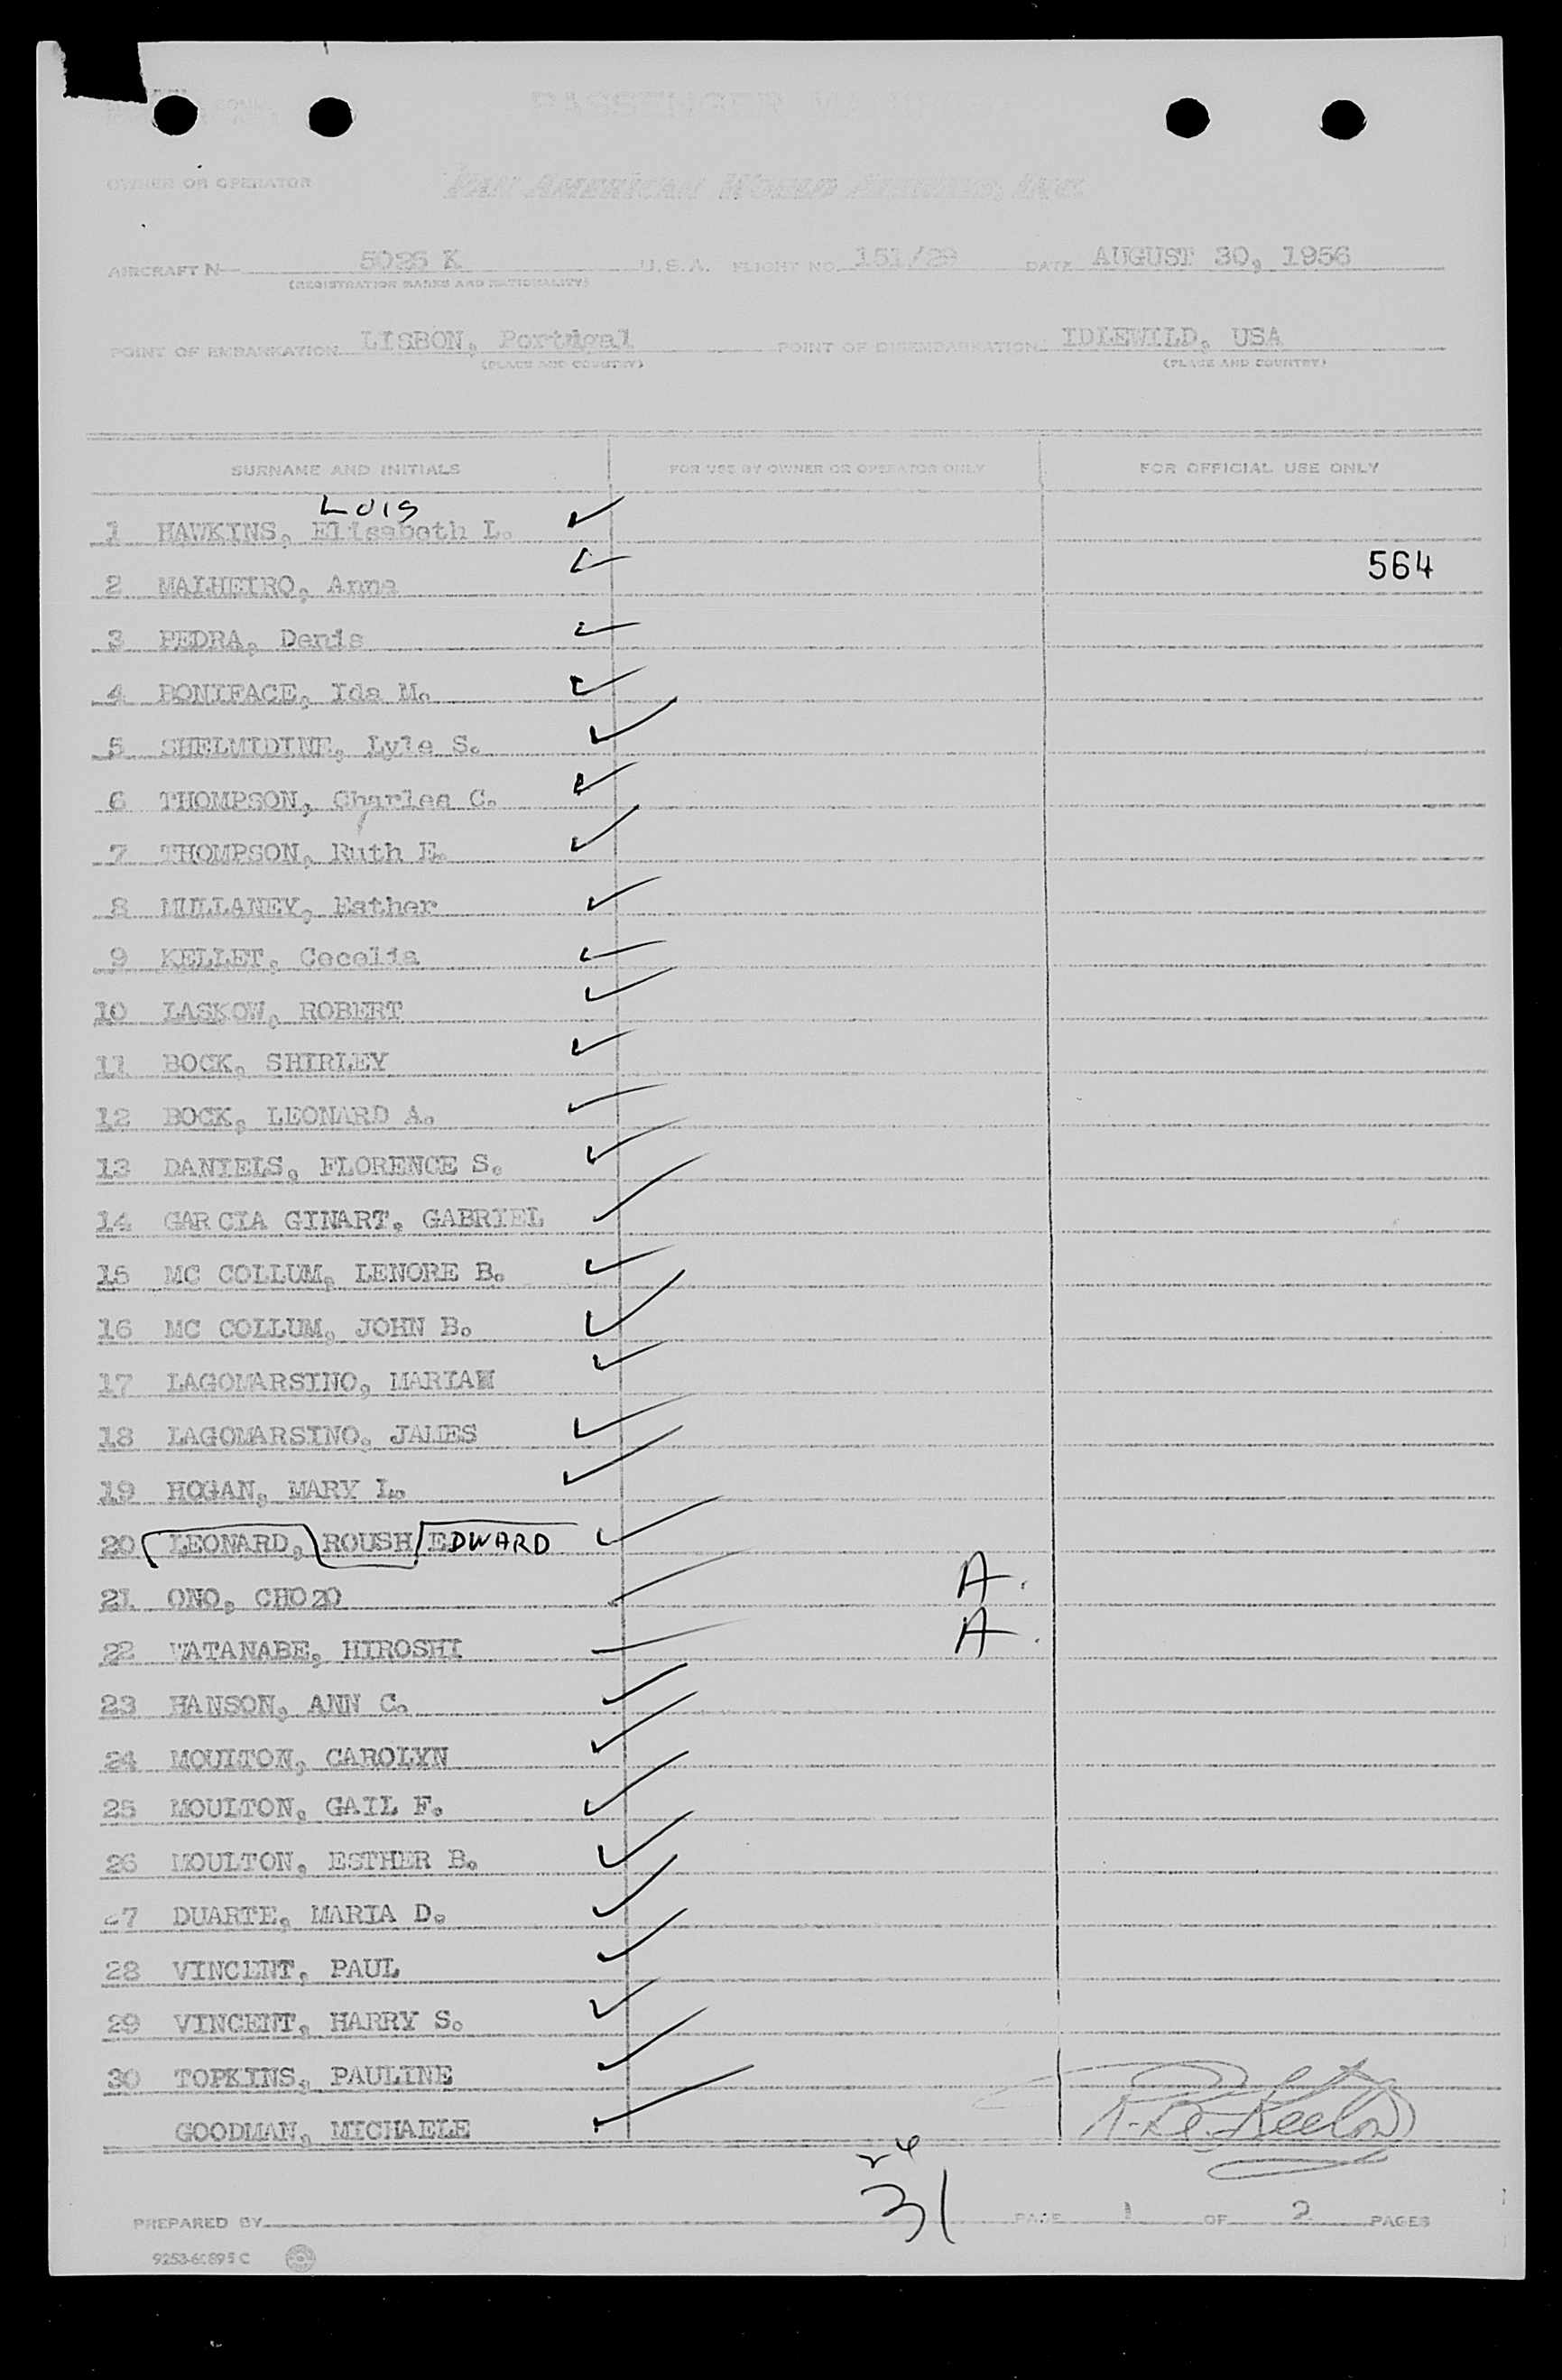 PASSENGER
OWNER OR OPERATOR PAN AMERICAN WORLD AIRWAYS, INC.
AIRCRAFT N 5025 K U.S.A. FLIGHT NO. 151/29 DATE AUGUST 30, 1956
(REGISTRATION MARKS AND NATIONALITY)
POINT OF EMBARKATION LISBON, Portugal POINT OF DISEMBARKATION IDLEWILD, USA
(PLACE AND COUNTRY) (PLACE AND COUNTRY)
SURNAME AND INITIALS FOR USE BY OWNER OR OPERATOR ONLY FOR OFFICIAL USE ONLY
LOIS
1 HAWKINS, Elisabeth L.
564
2 MALHEIRO, Anna
3 PEDRA, Denis
4 BONIFACE, Ida M.
5 SHELMIDINE, Lyle S.
6 THOMPSON, Charles C.
7 THOMPSON, Ruth E.
8 MULLANEY, Esther
9 KELLET, Cecelia
10 LASKOW, ROBERT
11 BOCK, SHIRLEY
12 BOCK, LEONARD A.
13 DANIELS, FLORENCE S.
14 GARCIA GINART, GABRIEL
15 MC COLLUM, LENORE B.
16 MC COLLUM, JOHN B.
17 LAGOMARSINO, MARIAN
18 LAGOMARSINO, JAMES
19 HOGAN, MARY L.
20 LEONARD, ROUSH EDWARD
21 ONO, CHOZO A.
22 WATANABE, HIROSHI A.
23 HANSON, ANN C.
24 MOULTON, CAROLYN
25 MOULTON, GAIL F.
26 MOULTON, ESTHER B.
27 DUARTE, MARIA D.
28 VINCENT, PAUL
29 VINCENT, HARRY S.
30 TOPKINS, PAULINE
GOODMAN, MICHAELE
31
PREPARED BY PAGE 1 OF 2 PAGES